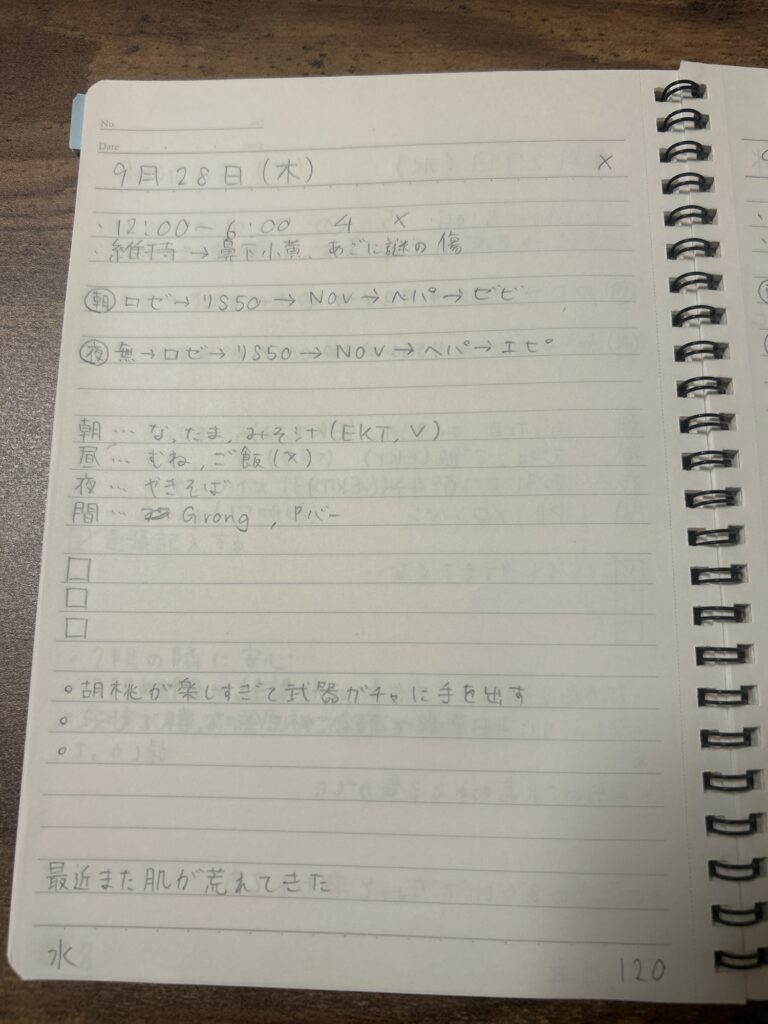 No.
Date
9月28日(木) ×
・12:00〜6:00 4 ×
・維持→鼻下小黄、あごに謎の傷
朝 ロゼ→リS50→NOV→ヘパ→ゼビ
夜 無→ロゼ→リS50→NOV→ヘパ→エピ
朝… な,たま,みそ汁(EKT,V)
昼… むね,ご飯(×)
夜… やきそば
間… Grong,Pバー
□
□
□
○胡桃が楽しすぎて武器ガチャに手を出す
○
○
最近また肌が荒れてきた
水 120